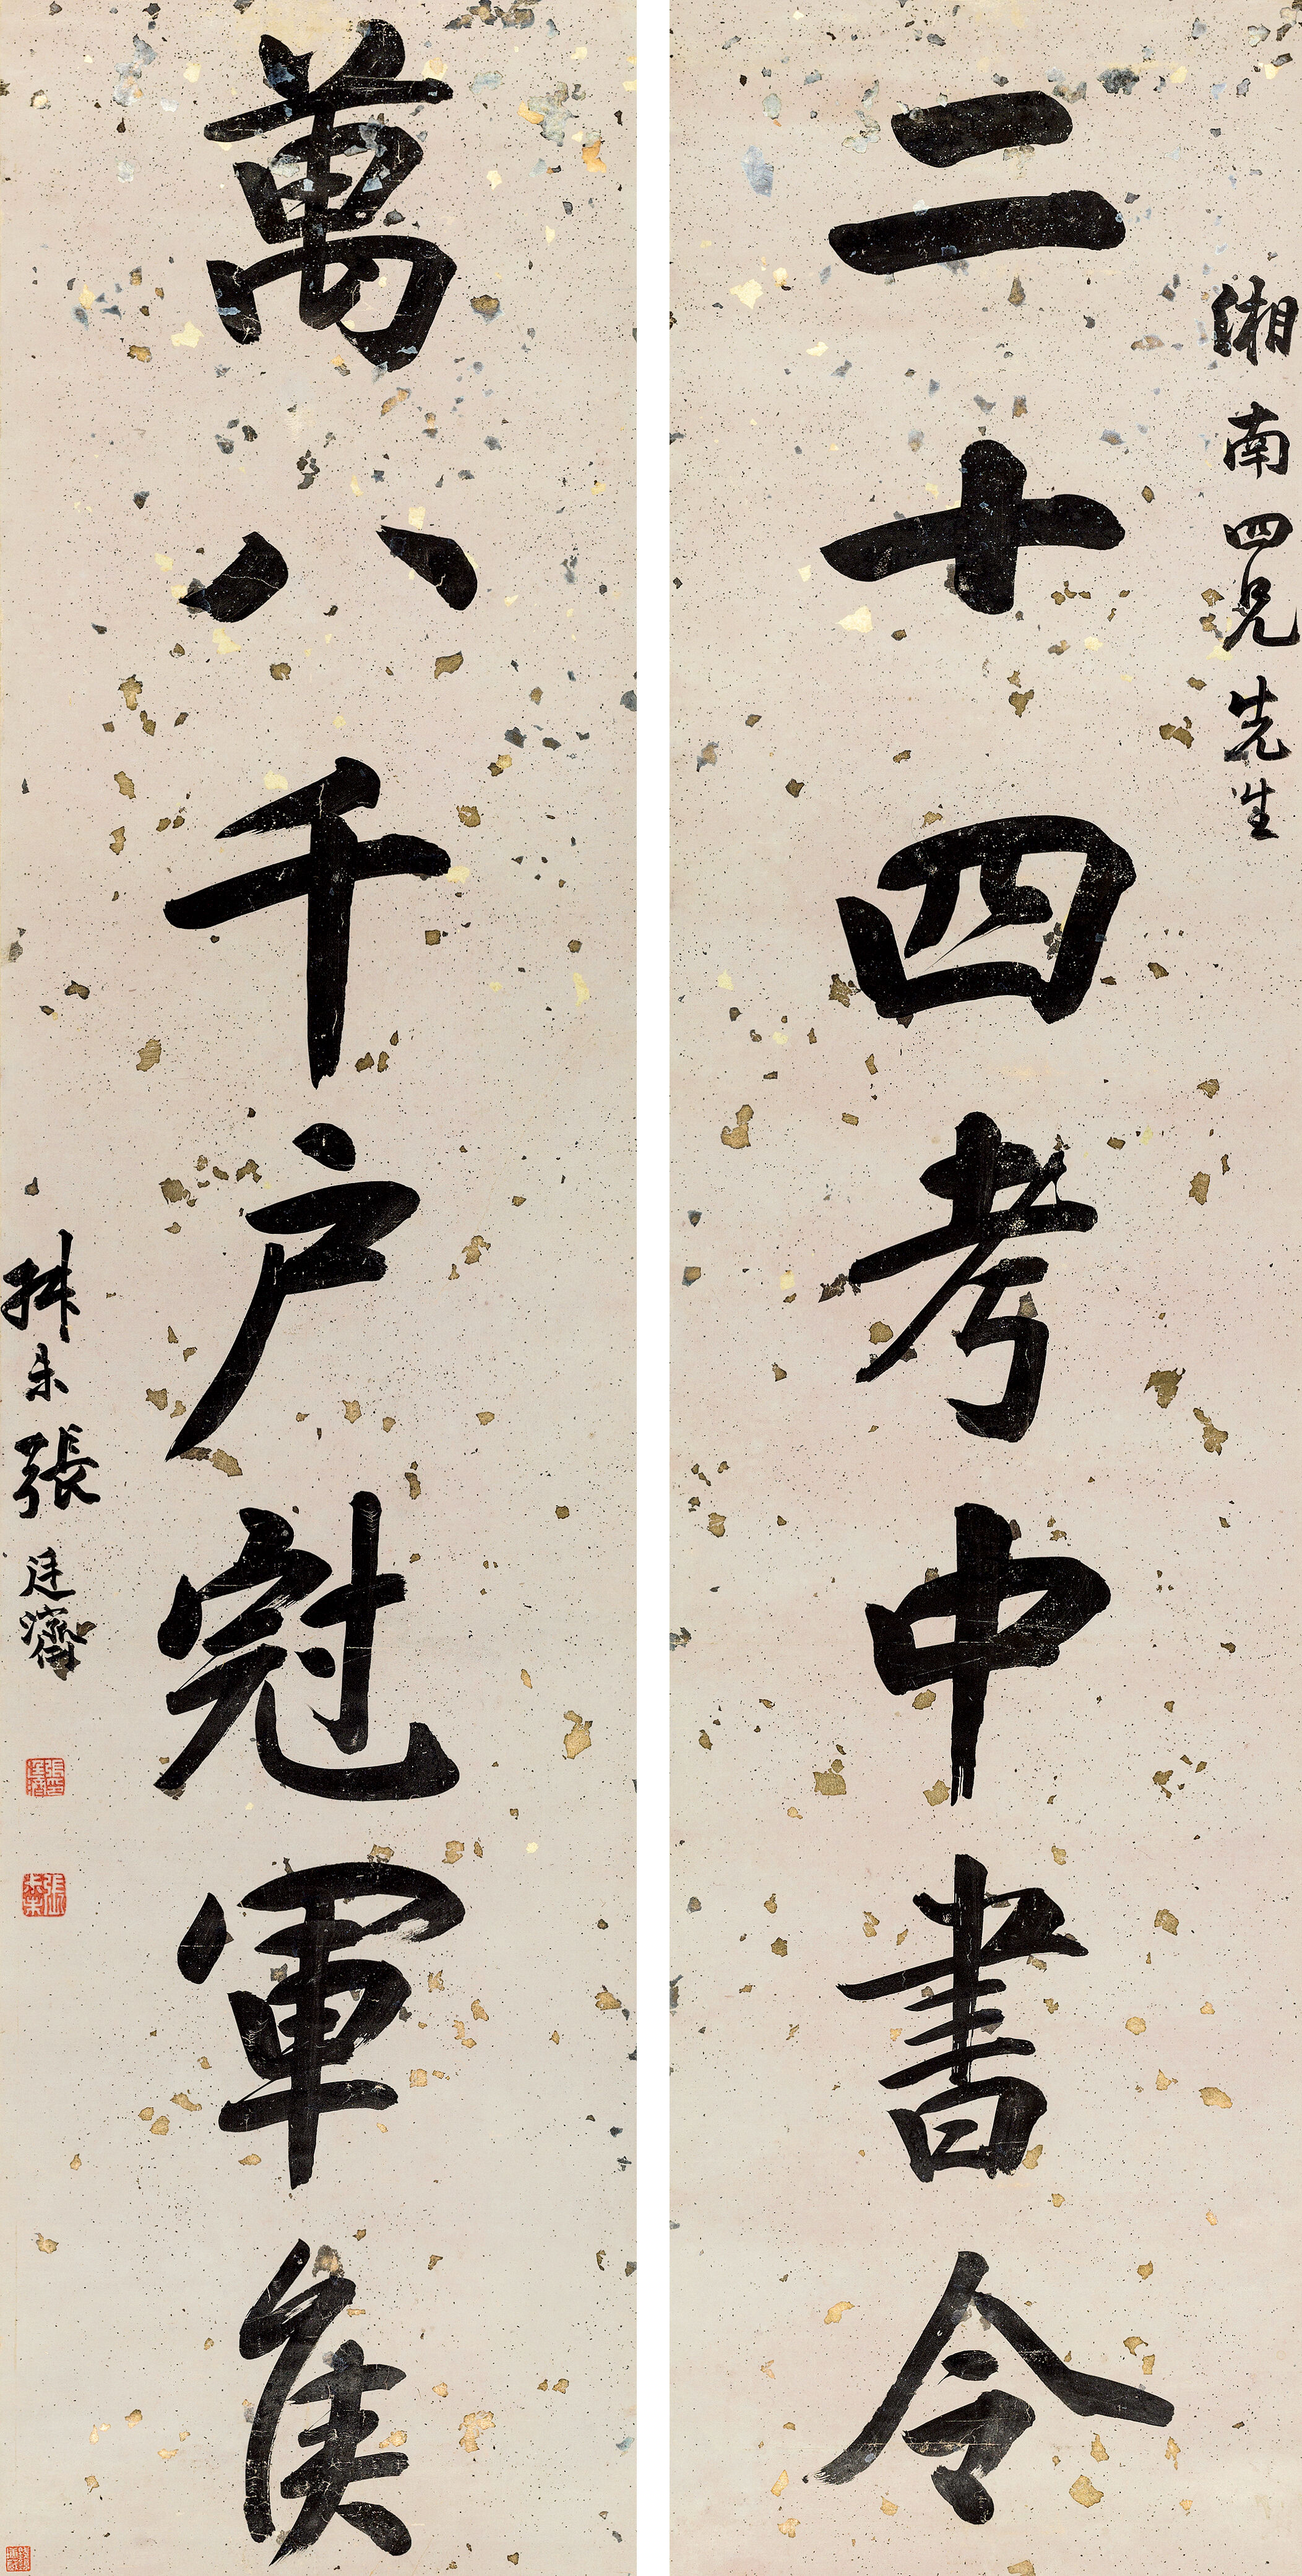 湘南四兄先生
二十四考中書令
萬八千户冠軍侯
叔未張廷濟
張廷濟印
張叔未